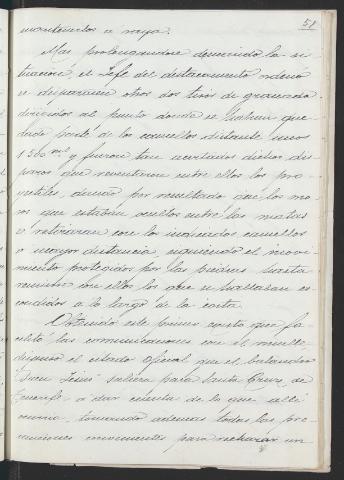 51
mantenerlos a raya.
Mas prolongandose demasiado la si-
tuacion, el Jefe del destacamento ordenó
se disparasen otros dos tiros de granada
dirigidos al punto donde se habian que-
dado parte de los camellos distante unos
1500 m. y fueron tan acertados dichos dis-
paros que reventaron entre ellos los pro-
yectiles, dando por resultado que los mo-
ros que estaban ocultos entre las matas
se retiraran con los indicados camellos
a mayor distancia, siguiendo el movi-
miento protegidos por las piedras hasta
reunirse con ellos los que se hallaban es-
condidos a lo largo de la costa.
Obtenido este primer exito que fa-
cilitó las comunicaciones con el muelle
dispuso el citado oficial que el balandro
"Buen Jesus" saliera para Santa Cruz de
Tenerife a dar cuenta de lo que alli
ocurria, tomando ademas todas las pre-
cauciones convenientes para rechazar un